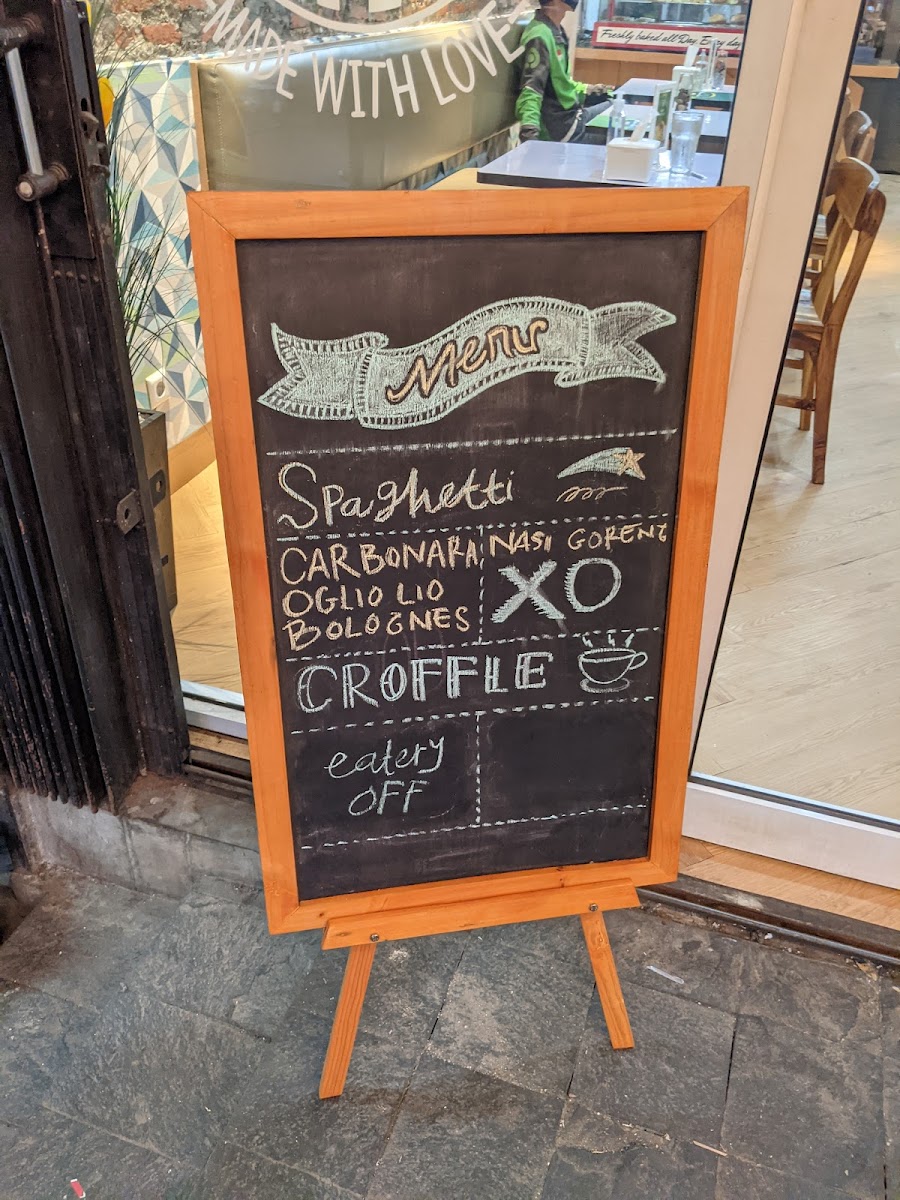 MADE WITH LOVE
Freshly baked all Day Every day
Menu
Spaghetti
CARBONARA
OGLIO LIO
BOLOGNES
NASI GORENG
XO
CROFFLE
eatery
OFF